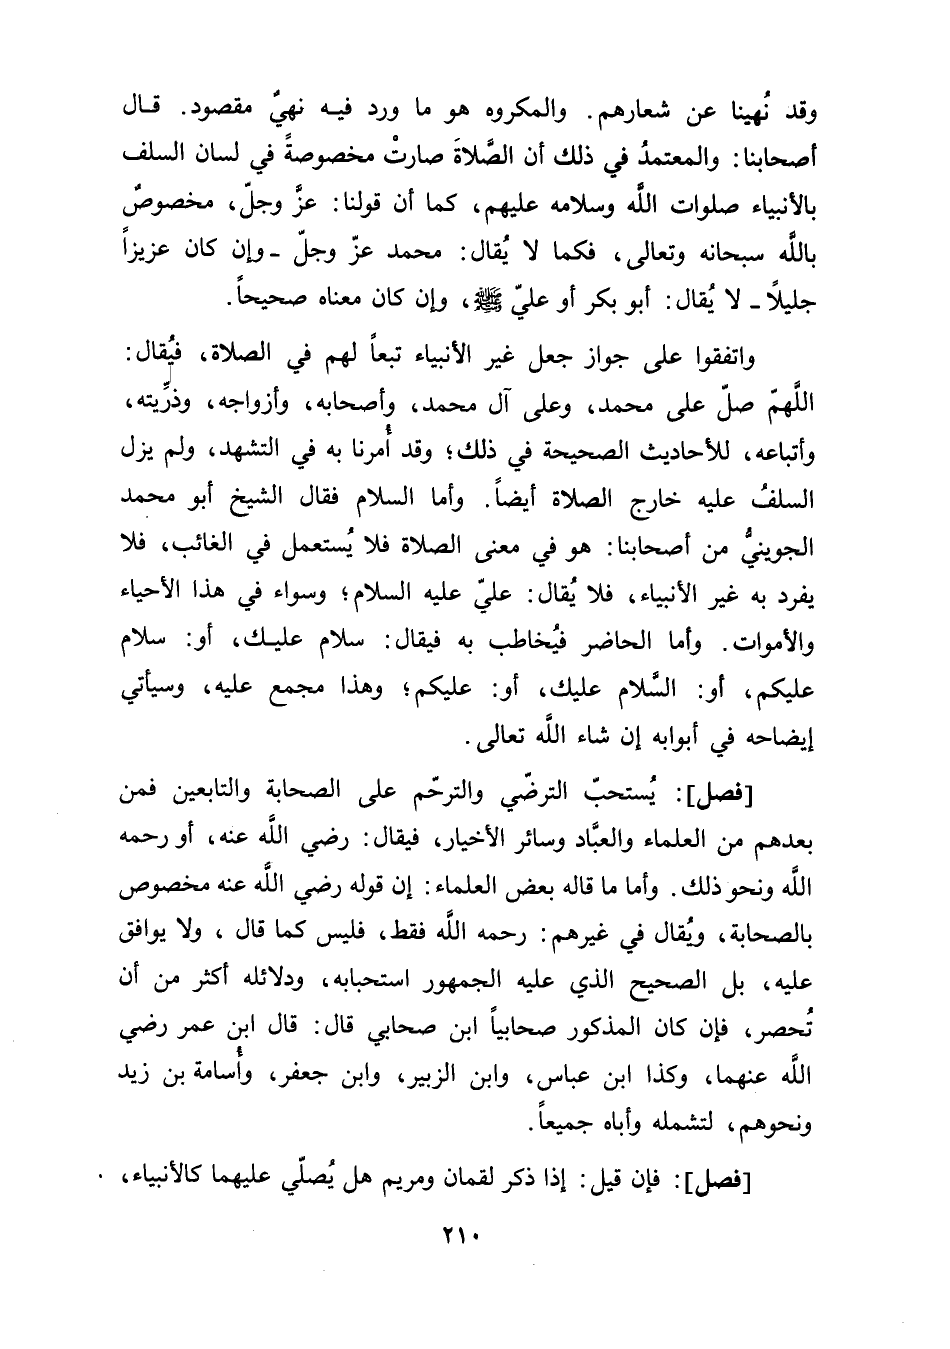 وقد نُهينا عن شعارهم. والمكروه هو ما ورد فيـه نهيٌ مقصود. قـال
أصحابنا: والمعتمدُ في ذلك أن الصَّلاةَ صارتْ مخصوصةً في لسان السلف
بالأنبياء صلوات اللَّه وسلامه عليهم، كما أن قولنا: عزَّ وجلّ، مخصوصٌ
باللَّه سبحانه وتعالى، فكما لا يُقال: محمد عزّ وجلّ ـ وإن كان عزيزاً
جليلًا ـ لا يُقال: أبو بكر أو عليّ ﷺ، وإن كان معناه صحيحاً.
واتفقوا على جواز جعل غير الأنبياء تبعاً لهم في الصلاة، فيُقال:
اللَّهمّ صلّ على محمد، وعلى آل محمد، وأصحابه، وأزواجه، وذرِّيته،
وأتباعه، للأحاديث الصحيحة في ذلك؛ وقد أُمرنا به في التشهد، ولم يزل
السلفُ عليه خارج الصلاة أيضاً. وأما السلام فقال الشيخ أبو محمد
الجوينيُّ من أصحابنا: هو في معنى الصلاة فلا يُستعمل في الغائب، فلا
يفرد به غير الأنبياء، فلا يُقال: عليّ عليه السلام؛ وسواء في هذا الأحياء
والأموات. وأما الحاضر فيُخاطب به فيقال: سلام عليـك، أو: سلام
عليكم، أو: السَّلام عليك، أو: عليكم؛ وهذا مجمع عليه، وسيأتي
إيضاحه في أبوابه إن شاء اللَّه تعالى.
[فصل]: يُستحبّ الترضّي والترحّم على الصحابة والتابعين فمن
بعدهم من العلماء والعبَّاد وسائر الأخيار، فيقال: رضي اللَّه عنه، أو رحمه
اللَّه ونحو ذلك. وأما ما قاله بعض العلماء: إن قوله رضي اللَّه عنه مخصوص
بالصحابة، ويُقال في غيرهم: رحمه اللَّه فقط، فليس كما قال ، ولا يوافق
عليه، بل الصحيح الذي عليه الجمهور استحبابه، ودلائله أكثر من أن
تُحصر، فإن كان المذكور صحابياً ابن صحابي قال: قال ابن عمر رضي
اللَّه عنهما، وكذا ابن عباس، وابن الزبير، وابن جعفر، وأُسامة بن زيد
ونحوهم، لتشمله وأباه جميعاً.
[فصل]: فإن قيل: إذا ذكر لقمان ومريم هل يُصلّي عليهما كالأنبياء،
٢١٠